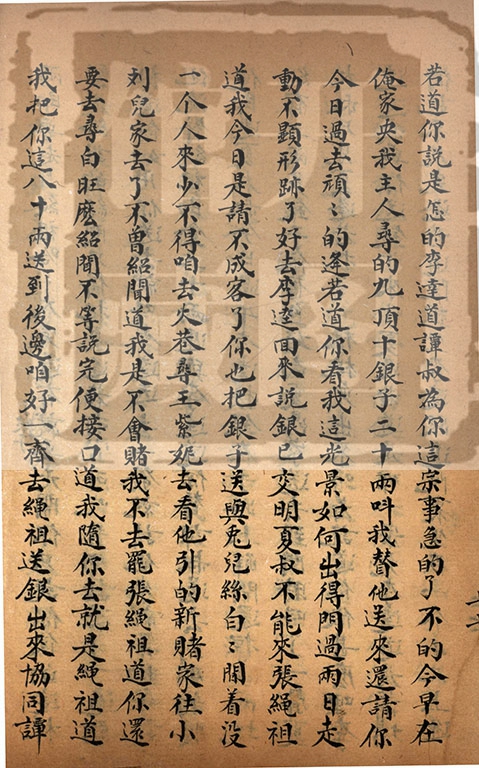 若道你説是怎的李逵道譚叔為你這宗事急的了不的今早在
俺家央我主人尋的九頂十銀子二十兩呌我替他送來還請你
今日過去頑〻的逢若道你看我這光景如何出得門過兩日走
動不顯形跡了好去李逵回來説銀已交明夏叔不能來張繩祖
道我今日是請不成客了你也把銀子送與兎兒絲白〻閙着没
一个人來少不得咱去火巷尋王紫妮去看他引的新賭家往小
刘兒家去了不曾紹聞道我是不會賭我不去罷張繩祖道你還
要去尋白旺麽紹聞不等説完便接口道我隨你去就是繩祖道
我把你這八十兩送到後邊咱好一齊去繩祖送銀出來協同譚